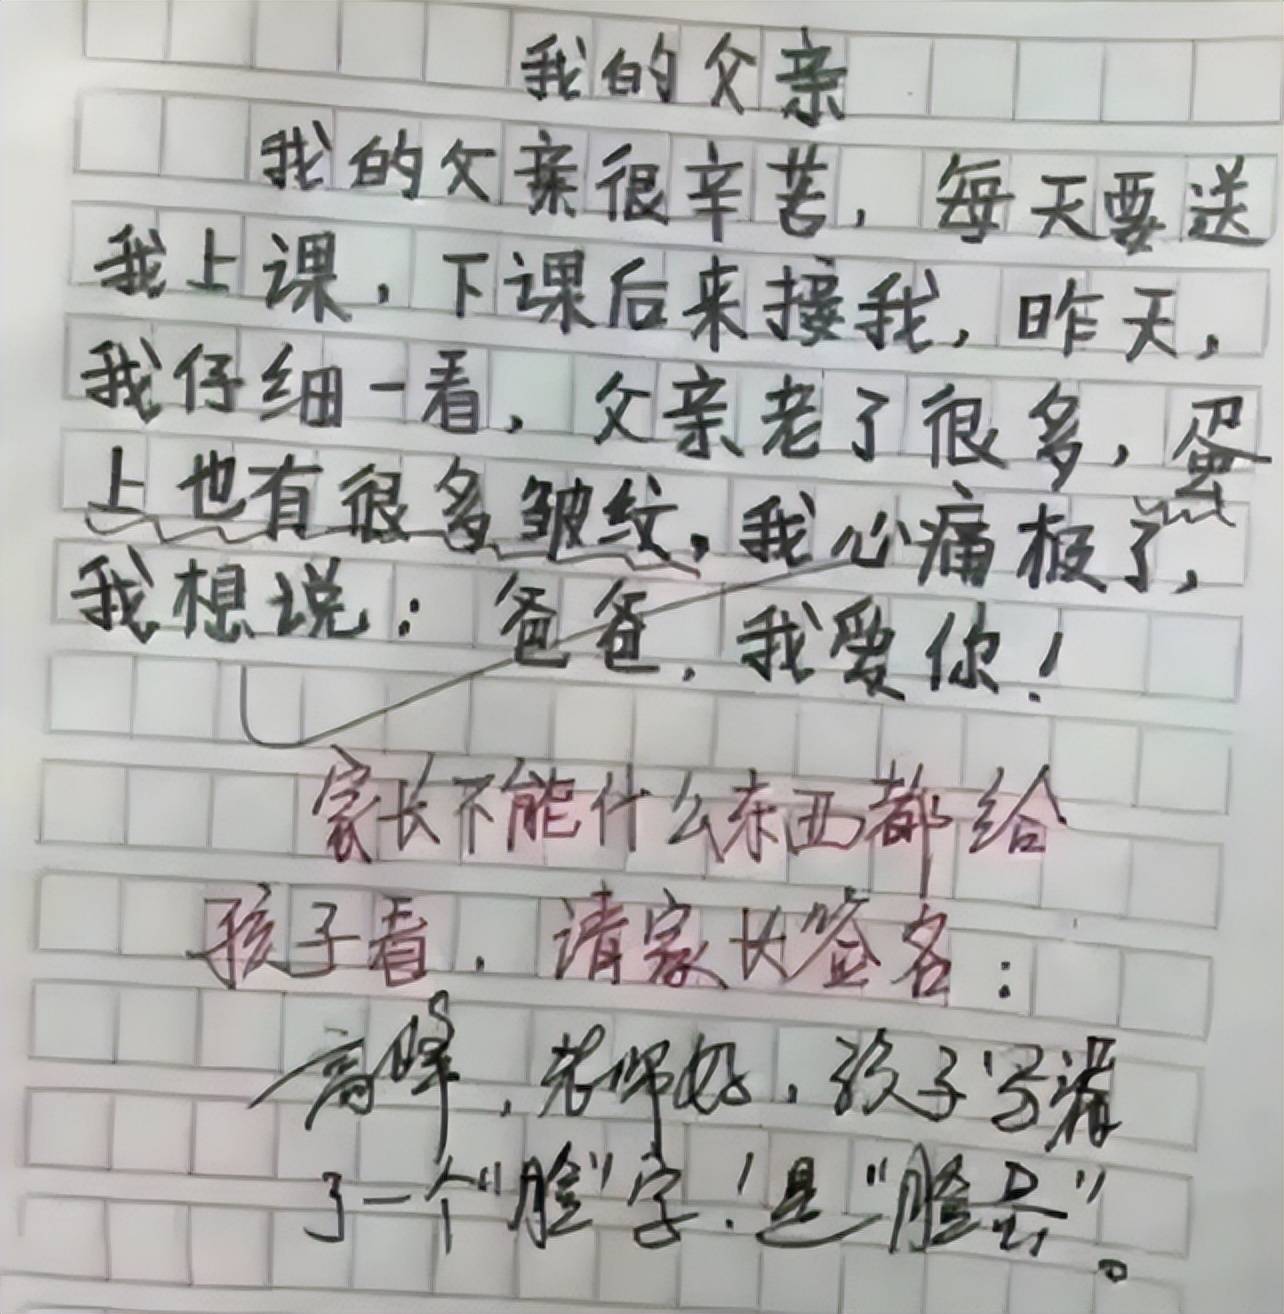 我的父亲
我的父亲很辛苦，每天要送
我上课，下课后来接我，昨天，
我仔细一看，父亲老了很多，蛋
上也有很多皱纹，我心痛极了，
我想说：爸爸，我爱你！
家长不能什么东西都给
孩子看．请家长签名：
高峰，老师好，孩子写漏
了一个“脸”字！是“脸蛋”。